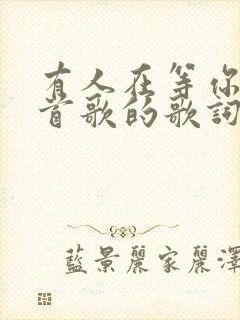 有人在等你
首歌的歌詞
藍景麗家麗澤